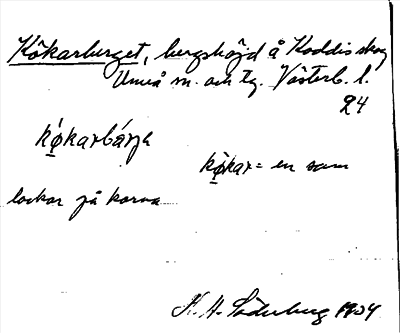 Kökarberget, bergshöjd å Koddis skog
Umeå sn. och tg. Västerb. l.
24
kø̀karbárja
kø̀kar = en som
lockar på korna
K. H. Söderberg 1904